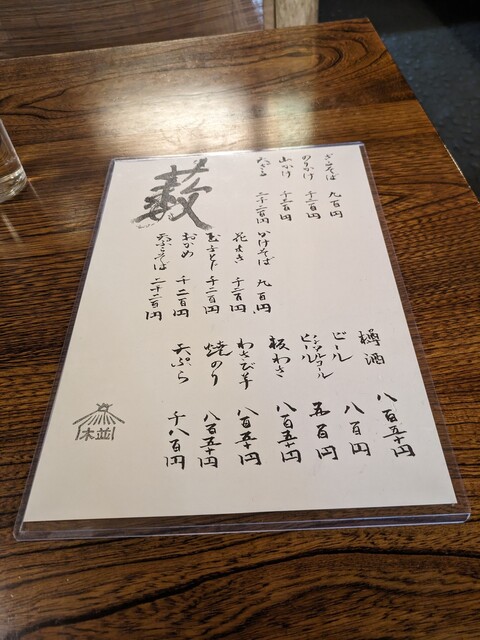 藪
ざるそば 九百円
のりかけ 千二百円
山かけ 千三百円
天ざる 二千二百円
かけそば 九百円
花まき 千二百円
玉子とじ 千二百円
おかめ 千二百円
天ぷらそば 二千二百円
樽酒 八百五十円
ビール 八百円
ノンアルコールビール 五百円
板わさ 八百五十円
わさび芋 八百五十円
焼のり 八百五十円
天ぷら 千八百円
並木